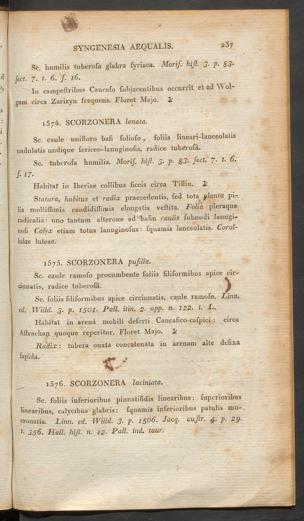 SYNGENESIA AEQUALIS. 237
Sc. humilis tuberosa glabra syriaca. Moris. hist. 3. p. 83.
sect. 7. t. 6. f. 16.
In campestribus Caucaso subjacentibus occurrit et ad Wol-
gam circa Zarizyn frequens. Floret Majo. ♃
1574. SCORZONERA lanata.
Sc. caule unifloro basi folioso, foliis lineari-lanceolatis
undulatis undique sericeo-lanuginosis, radice tuberosâ.
Sc. tuberosa humilis. Moris. hist. 3. p. 83. sect. 7. t. 6.
f. 17.
Habitat in Iberiae collibus siccis circa Tiflin. ♃
Statura, habitus et radix praecedentis, sed tota planta pi-
lis mollissimis candidissimis elongatis vestita. Folia pleraque
radicalia: uno tantum alterove ad basin caulis subnudi lanugi-
nosi Calyx etiam totus lanuginosus: squamis lanceolatis. Corol-
lulae luteae.
1575. SCORZONERA pusilla.
Sc. caule ramoso procumbente foliis filiformibus apice cir-
cinnatis, radice tuberosâ.
Sc. foliis filiformibus apice circinnatis, caule ramoso. Linn.
ed. Willd. 3. p. 1501. Pall. itin. 2. app. n. 122. t. L.
Habitat in arenâ mobili deserti Caucasico-caspici: circa
Astrachan quoque reperitur. Floret Majo. ♃
Radix: tubera ousta concatenata in arenam alte defixa
sapida.
1576. SCORZONERA laciniata.
Sc. foliis inferioribus pinnatifidis linearibus: superioribus
linearibus, calycibus glabris: squamis inferioribus patulis mu-
cronatis. Linn. ed. Willd. 3. p. 1506. Jacq. austr. 4. p. 29.
t. 356. Hall. hist. n. 12. Pall. ind. taur.